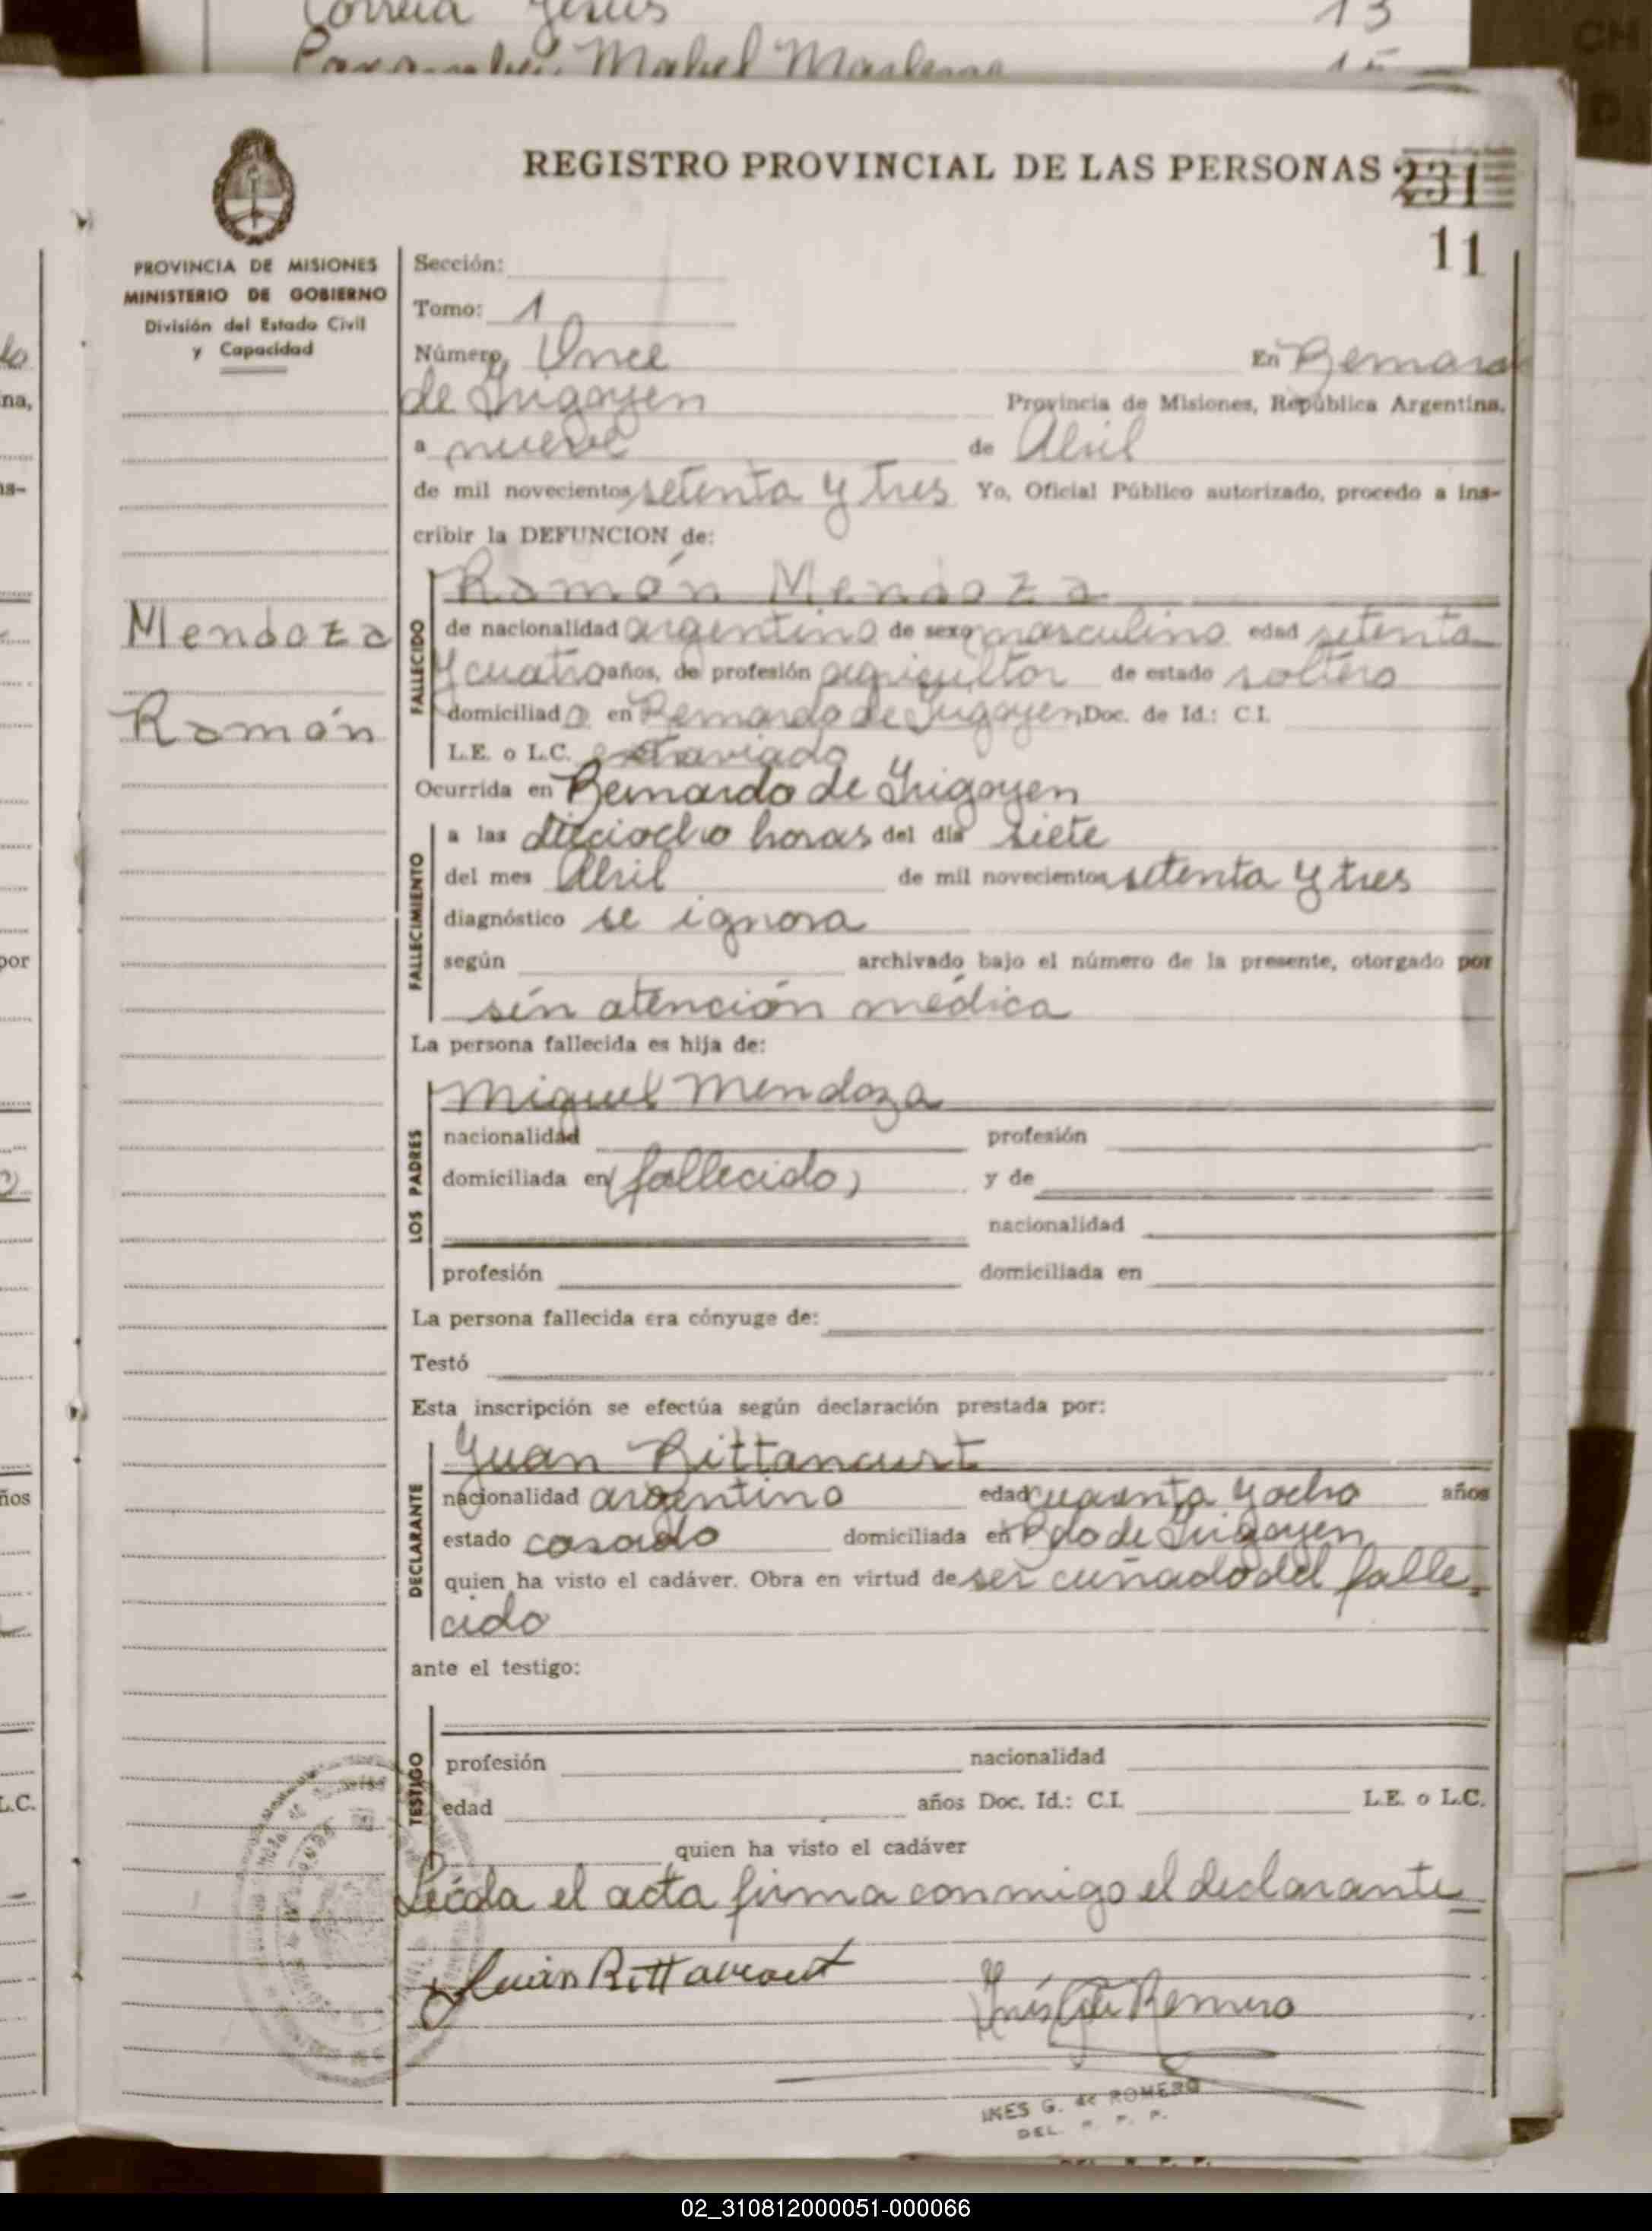 Correa Jesús 13
Mabel Marlene 15
REGISTRO PROVINCIAL DE LAS PERSONAS 231
11
PROVINCIA DE MISIONES
MINISTERIO DE GOBIERNO
División del Estado Civil
y Capacidad
Sección:
Tomo: 1
Número, Once En Bernardo
de Irigoyen Provincia de Misiones, República Argentina,
a nueve de Abril
de mil novecientos setenta y tres Yo, Oficial Público autorizado, procedo a ins-
cribir la DEFUNCION de:
Mendoza
Ramón
FALLECIDO
Ramón Mendoza
de nacionalidad argentino de sexo masculino edad setenta
y cuatro años, de profesión agricultor de estado soltero
domiciliado en Bernardo de Irigoyen, Doc. de Id.: C.I.
L.E. o L.C. extraviado
Ocurrida en Bernardo de Irigoyen
FALLECIMIENTO
a las dieciocho horas del día siete
del mes Abril de mil novecientos setenta y tres
diagnóstico se ignora
según archivado bajo el número de la presente, otorgado por
sin atención médica
La persona fallecida es hija de:
LOS PADRES
Miguel Mendoza
nacionalidad profesión
domiciliada en (fallecido) y de
nacionalidad
profesión domiciliada en
La persona fallecida era cónyuge de:
Testó
Esta inscripción se efectúa según declaración prestada por:
DECLARANTE
Juan Bittancurt
nacionalidad argentino edad cuarenta y ocho años
estado casado domiciliada en Bdo de Irigoyen
quien ha visto el cadáver. Obra en virtud de ser cuñado del falle-
cido
ante el testigo:
TESTIGO
profesión nacionalidad
edad años Doc. Id.: C.I. L.E. o L.C.
quien ha visto el cadáver
Leída el acta firma conmigo el declarante
Juan Bittancourt
Inés G. de Romero
INES G. de ROMERO
DEL. R. P. P.
02_310812000051-000066